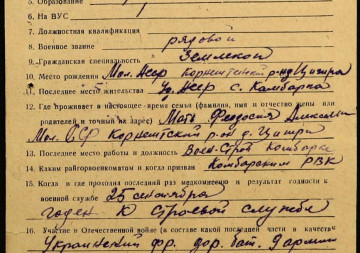 5. Образование
6. На ВУС
7. Должностная квалификация
8. Военное звание рядовой
9. Гражданская специальность Землекоп
10. Место рождения Мол. ССР Корнештский р-н д. Цигира
11. Последнее место жительства Уд. АССР с. Камбарка
12. Где проживает в настоящее время семья (фамилия, имя и отчество жены или
родителей и точный их адрес) Мать Феодосия
Мол. ССР Корнештский р-он д. Цигири
14. Последнее место работы и должность Воен-Строй Камбарка
14. Каким райгорвоенкоматом и когда призван Камбарским РВК
15. Когда и где проходил последний раз медкомиссию и результат годности к
военной службе 25 сентября
годен к строевой службе
16. Участие в Отечественной войне (в составе какой последней части и в качестве
Украинский фр. дор. бат. 9 армии